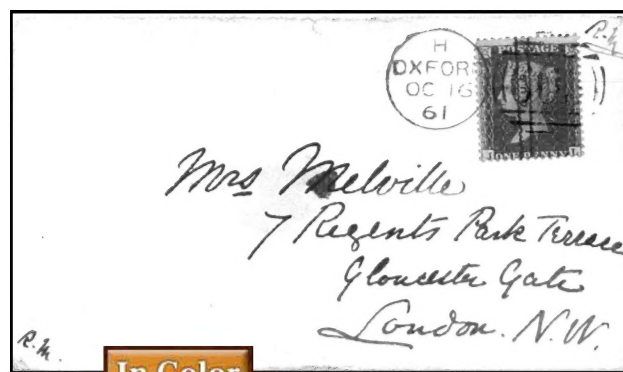 R.M.
H
OXFORD
OC 16
61
POSTAGE
ONE PENNY
Mrs Melville
7 Regents Park Terrace
Gloucester Gate
London. N.W.
R.M.
In Color